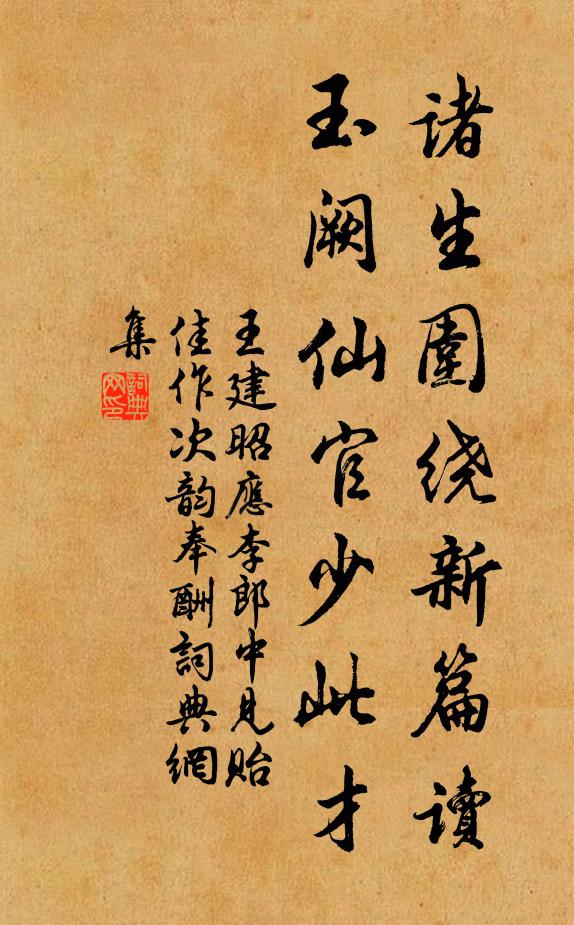 诸生围绕新篇读
玉阙仙官少此才
王建昭應李郎中見貽
佳作次韵奉酬詞典網
集
詞典
网印